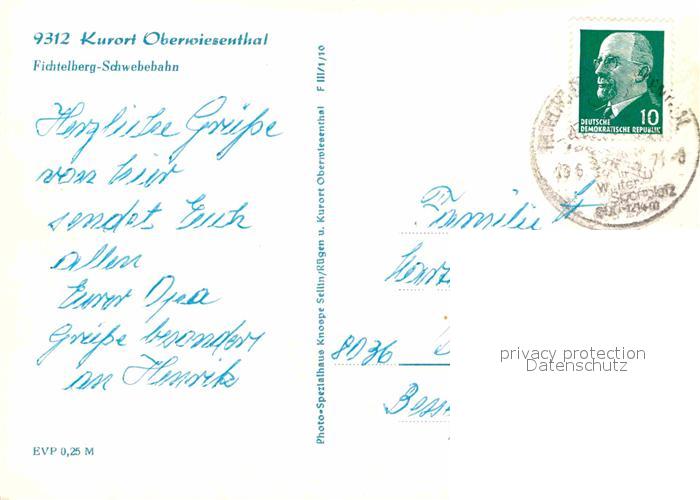 9312 Kurort Oberwiesenthal
Fichtelberg-Schwebebahn
Herzliche Grüße
von hier
sendet Euch
allen
Euer Opa
Grüße besonders
an Henrik
EVP 0,25 M
Photo-Spezialhaus Knospe Sellin/Rügen u. Kurort Oberwiesenthal F III/1/10
Familie
8036
10
DEUTSCHE
DEMOKRATISCHE REPUBLIK
Sportplatz
privacy protection
Datenschutz